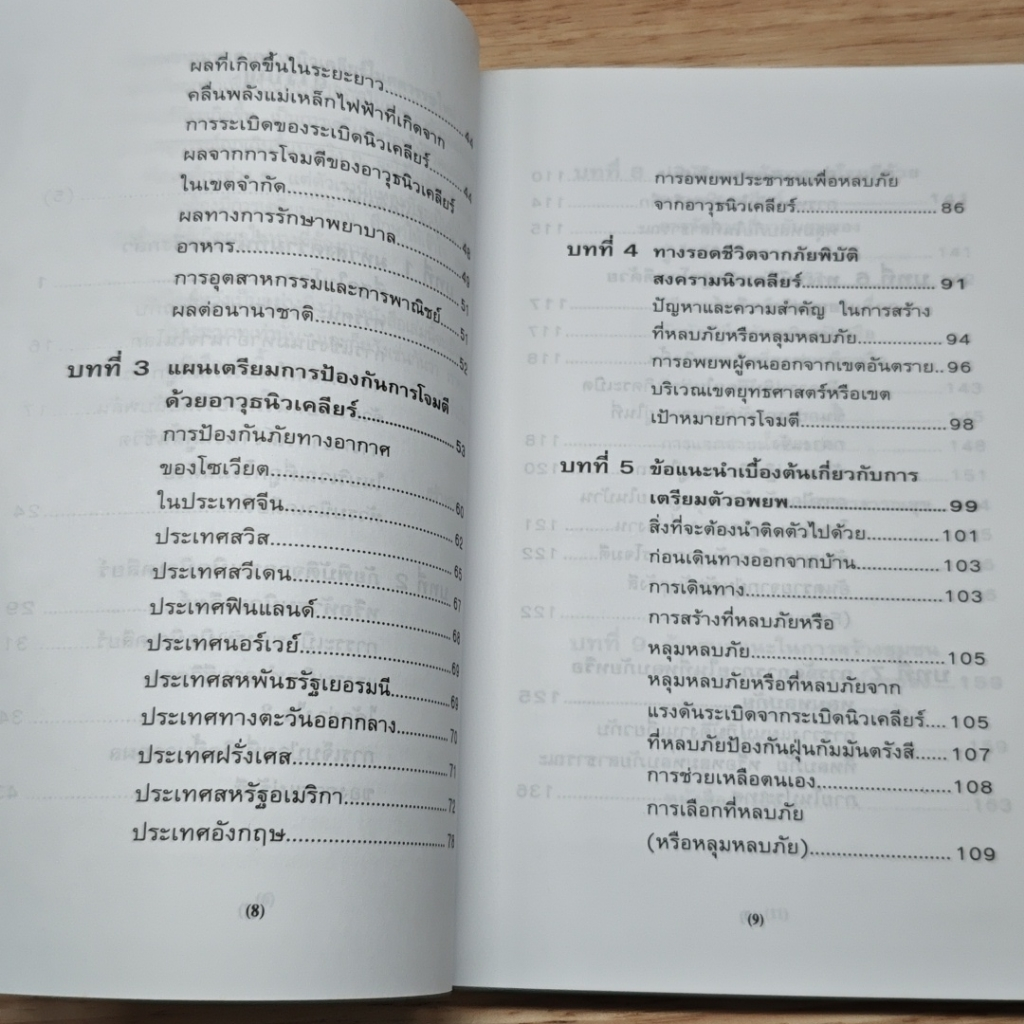 ผลที่เกิดขึ้นในระยะยาว..................44
คลื่นพลังแม่เหล็กไฟฟ้าที่เกิดจาก
การระเบิดของระเบิดนิวเคลียร์.........44
ผลจากการโจมตีของอาวุธนิวเคลียร์
ในเขตจำกัด..............................48
ผลทางการรักษาพยาบาล...............49
อาหาร.....................................51
การอุตสาหกรรมและการพาณิชย์.......51
ผลต่อนานาชาติ..........................52
บทที่ 3 แผนเตรียมการป้องกันการโจมตี
ด้วยอาวุธนิวเคลียร์......................53
การป้องกันภัยทางอากาศ
ของโซเวียต...............................60
ในประเทศจีน.............................62
ประเทศสวิส...............................65
ประเทศสวีเดน............................67
ประเทศฟินแลนด์........................68
ประเทศนอร์เวย์..........................69
ประเทศสหพันธรัฐเยอรมนี.............69
ประเทศทางตะวันออกกลาง.............70
ประเทศฝรั่งเศส..........................71
ประเทศสหรัฐอเมริกา....................72
ประเทศอังกฤษ...........................78
(8)
การอพยพประชาชนเพื่อหลบภัย
จากอาวุธนิวเคลียร์...................... 86
บทที่ 4 ทางรอดชีวิตจากภัยพิบัติ
สงครามนิวเคลียร์......................91
ปัญหาและความสำคัญ ในการสร้าง
ที่หลบภัยหรือหลุมหลบภัย.............. 94
การอพยพผู้คนออกจากเขตอันตราย..96
บริเวณเขตยุทธศาสตร์หรือเขต
เป้าหมายการโจมตี.......................98
บทที่ 5 ข้อแนะนำเบื้องต้นเกี่ยวกับการ
เตรียมตัวอพยพ.........................99
สิ่งที่จะต้องนำติดตัวไปด้วย............101
ก่อนเดินทางออกจากบ้าน..............103
การเดินทาง..............................103
การสร้างที่หลบภัยหรือ
หลุมหลบภัย..............................105
หลุมหลบภัยหรือที่หลบภัยจาก
แรงดันระเบิดจากระเบิดนิวเคลียร์.... 105
ที่หลบภัยป้องกันฝุ่นกัมมันตรังสี..... 107
การช่วยเหลือตนเอง.....................108
การเลือกที่หลบภัย
(หรือหลุมหลบภัย)...................... 109
(9)